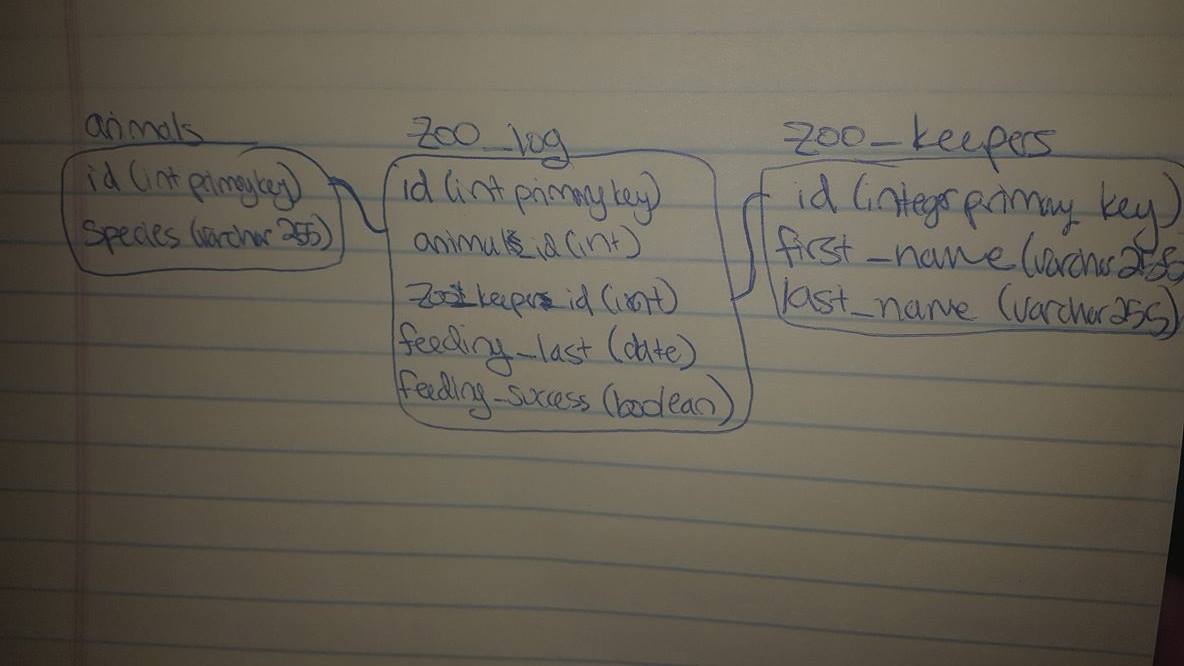 animals
id (int primary key)
species (varchar 255)
zoo_log
id (int primary key)
animal id (int)
zoo keeper id (int)
feeding_last (date)
feeding_success (boolean)
zoo_keepers
id (integer primary key)
first_name (varchar 255)
last_name (varchar 255)